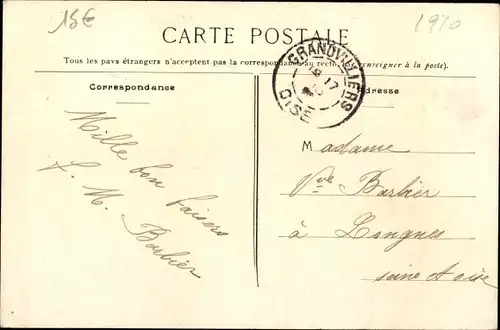 15€
1910
CARTE POSTALE
Tous les pays étrangers n'acceptent pas la correspondance au recto (se renseigner à la poste).
GRANDVILLIERS
17
OISE
Correspondance
Adresse
Mille bon baisers
M. Barbier
Madame
Vve Barbier
à Longnes
Seine et Oise